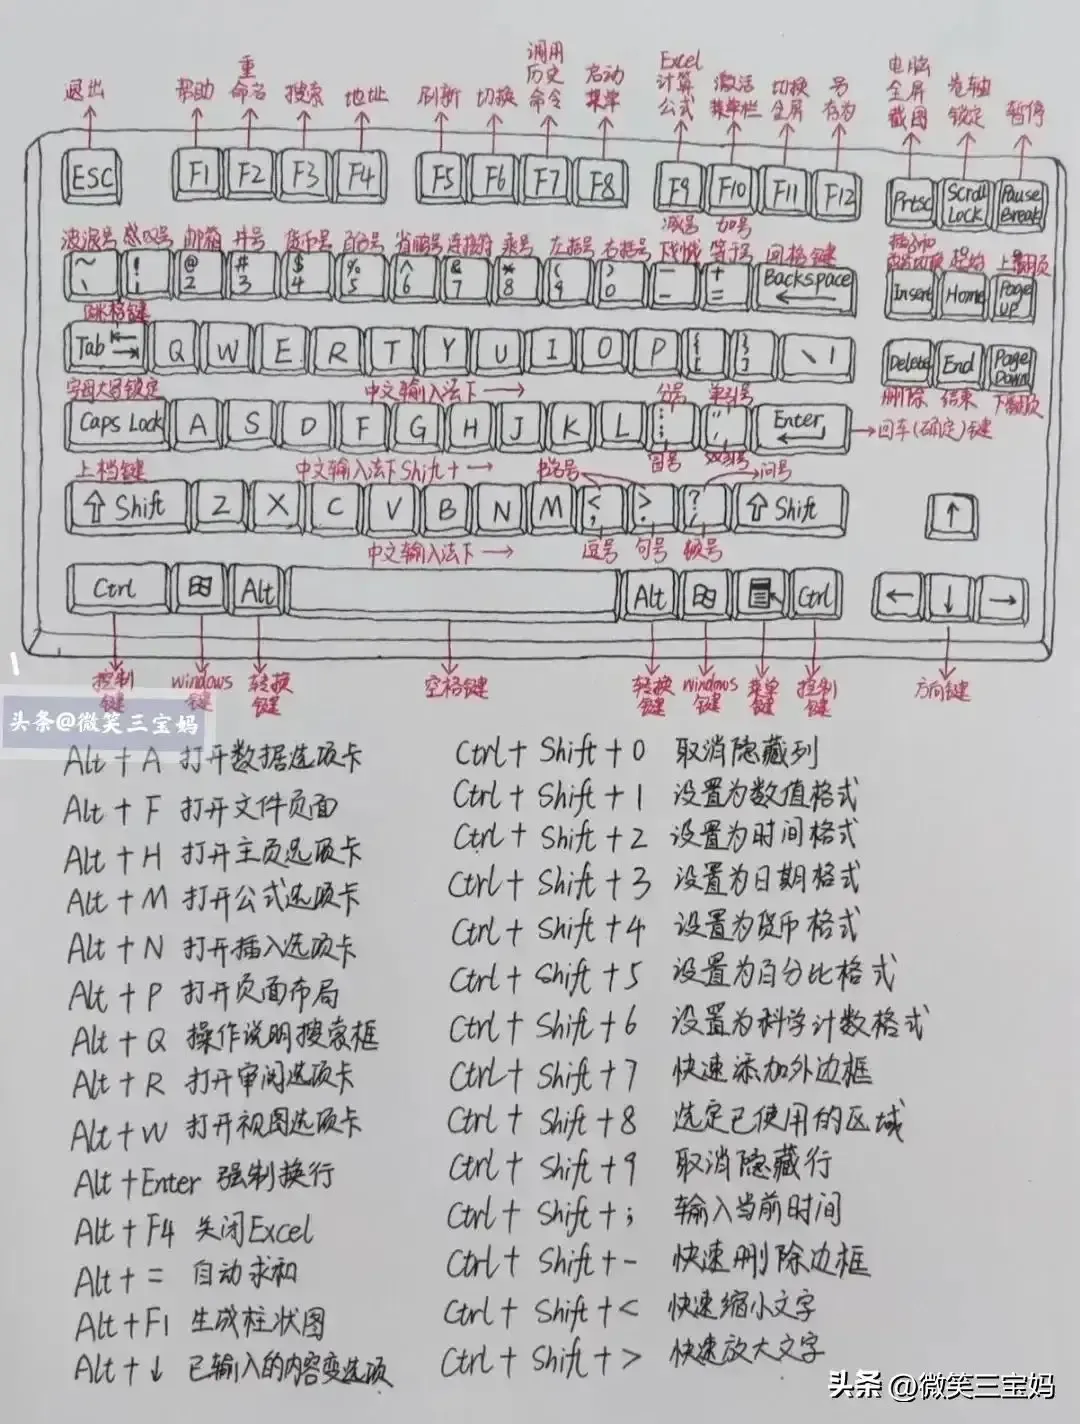 退出
帮助
重
命名
搜索
地址
刷新
切换
调用
历史
命令
启动
菜单
Excel
计算
公式
激活
菜单栏
切换
全屏
另
存为
电脑
全屏
截图
卷轴
锁定
暂停
ESC F1 F2 F3 F4 F5 F6 F7 F8 F9 F10 F11 F12 Prtsc Scroll Lock Pause Break
减号 加号
波浪号 感叹号 邮箱 井号 货币号 百分号 省略号 连接符 乘号 左括号 右括号 下划线 等于号 回格键 起始 上翻页
~ ! @ # $ % ^ & * ( ) — + Backspace
、 1 2 3 4 5 6 7 8 9 0 - =
Insert Home Page UP
跳格键
Tab Q W E R T Y U I O P { [ } ] \ | Delete End Page Down
字母大写锁定 中文输入法下 分号 单引号 删除 结束 下翻页
Caps Lock A S D F G H J K L : ; " ' Enter 回车(确定)键
上档键 中文输入法下Shift+ 书名号 冒号 双引号 问号
Shift Z X C V B N M < , > . ? / Shift ↑
中文输入法下 逗号 句号 顿号
Ctrl Alt Alt Ctrl ← ↓ →
控制
键
windows
键
转换
键
空格键
转换
键
windows
键
菜单
键
控制
键
方向键
头条@微笑三宝妈
Alt + A 打开数据选项卡
Alt + F 打开文件页面
Alt + H 打开主页选项卡
Alt + M 打开公式选项卡
Alt + N 打开插入选项卡
Alt + P 打开页面布局
Alt + Q 操作说明搜索框
Alt + R 打开审阅选项卡
Alt + W 打开视图选项卡
Alt +Enter 强制换行
Alt + F4 关闭Excel
Alt + = 自动求和
Alt + F1 生成柱状图
Alt + ↓ 已输入的内容变选项
Ctrl + Shift + 0 取消隐藏列
Ctrl + Shift + 1 设置为数值格式
Ctrl + Shift + 2 设置为时间格式
Ctrl + Shift + 3 设置为日期格式
Ctrl + Shift + 4 设置为货币格式
Ctrl + Shift + 5 设置为百分比格式
Ctrl + Shift + 6 设置为科学计数格式
Ctrl + Shift + 7 快速添加外边框
Ctrl + Shift + 8 选定已使用的区域
Ctrl + Shift + 9 取消隐藏行
Ctrl + Shift + ; 输入当前时间
Ctrl + Shift + - 快速删除边框
Ctrl + Shift + < 快速缩小文字
Ctrl + Shift + > 快速放大文字
头条 @微笑三宝妈